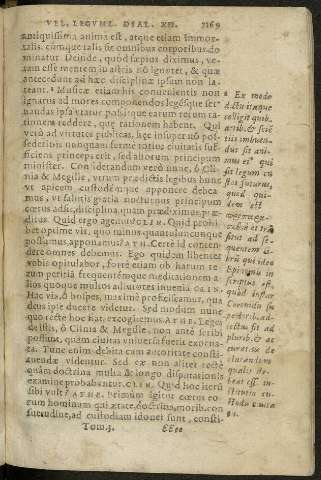 VEL, LEGVM, DIAL. XII. 769
antiquissima anima est, atque etiam immor-
talis, cúmque talis sit omnibus corporibus do-
minatur. Deinde, quod sæpius diximus, ve-
ram esse mentem in astris nō ignoret, & quæ
antecedunt ad hæc disciplinæ ipsum non la-
teant. Musicæ etiam his conuenientis non
ignarus ad mores componendos legésque ser-
uandas ipsa vtatur possitque earum rerum ra-
tionem reddere, quæ rationem habent. Qui
verò ad virtutes publicas, hæc insuper nō pos-
sederit is nunquam fermè totius ciuitatis suf-
ficiens princeps erit, sed aliorum principum
minister. Considerandum verò nunc, ô Cli-
nia & Megille, vtrum prædictis legibus hunc
vt apicem custodémque apponere debea-
mus, vt salutis gratia nocturnus principum
cœtus adsit, disciplina, quam prædiximus, præ-
ditus. Quid ergo agemus? CLIN. Quid prohi-
bet optime vir, quo minus quantulumcunque
possumus, apponamus? ATH. Certè id conten-
dere omnes debemus. Ego quidem libenter
vobis opitulabor, fortè etiam ob harum re-
rum peritiā frequentémque meditationem a-
lios quoque multos adiutores inuenia. CLIN.
Hac via, ô hospes, maximè proficiscamur, qua
deus ipse ducere videtur. Sed modum nunc
quo rectè hoc fiat, excogitemus. ATH. Leges
de istis, ô Clinia & Megille, non antè scribi
possunt, quàm ciuitas vniuersa fuerit exorna-
ta. Tunc enim debita cum autoritate consti-
tuendæ videntur. Sed ea non aliter rectè
quàm doctrina multa & longo disputationis
examine probabuntur. CLIN. Quid hoc iterū
sibi vult? ATHE. Primùm igitur cœtus eo-
rum hominum qui ætate, doctrina, morib. con-
suetudine, ad custodiam idonei sunt, consti-
Tom. 3. EEee
a Ex modo
dictis itaque
colligit quib.
artib. & sciē
tiis imbuen-
dus sit ani-
mus ei' qui
sit legum cu
stos futurus,
quod qui-
dem est